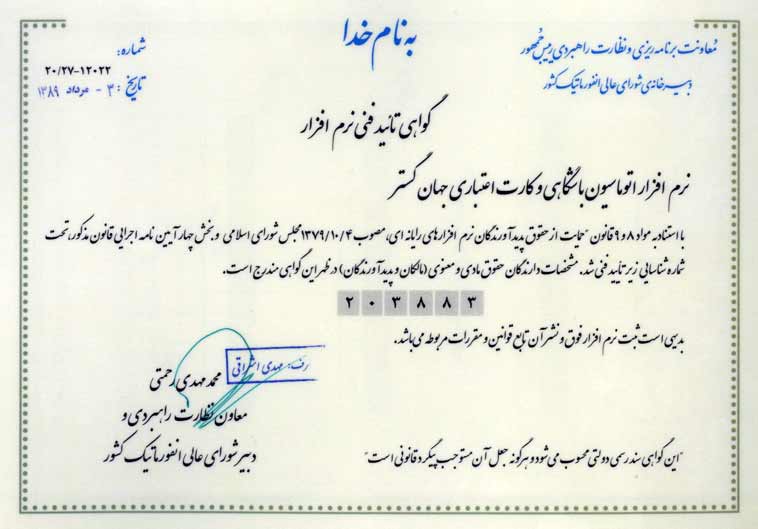 به نام خدا
معاونت برنامه ریزی و نظارت راهبردی رییس جمهور
دبیرخانه‌ی شورای عالی انفورماتیک کشور
شماره:
۲۰/۲۷-۱۲۰۲۲
تاریخ: ۳ - مرداد ۱۳۸۹
گواهی تائید فنی نرم افزار
نرم افزار اتوماسیون باشگاهی و کارت اعتباری جهان گستر
با استناد به مواد ۸ و ۹ قانون "حمایت از حقوق پدیدآورندگان نرم افزارهای رایانه ای، مصوب ۱۳۷۹/۱۰/۴ مجلس شورای اسلامی و بخش چهار آیین نامه اجرایی قانون مذکور، تحت
شماره شناسایی زیر تایید فنی شد. مشخصات دارندگان حقوق مادی و معنوی (مالکان و پدیدآورندگان) در ظهر این گواهی مندرج است.
۲۰۳۸۸۳
بدیهی است ثبت نرم افزار فوق و نشر آن تابع قوانین و مقررات مربوطه می باشد.
رف: مهدی اشراقی
محمد مهدی رحمتی
معاون نظارت راهبردی و
دبیر شورای عالی انفورماتیک کشور
"این گواهی سند رسمی دولتی محسوب می شود و هرگونه جعل آن مستوجب پیگرد قانونی است"